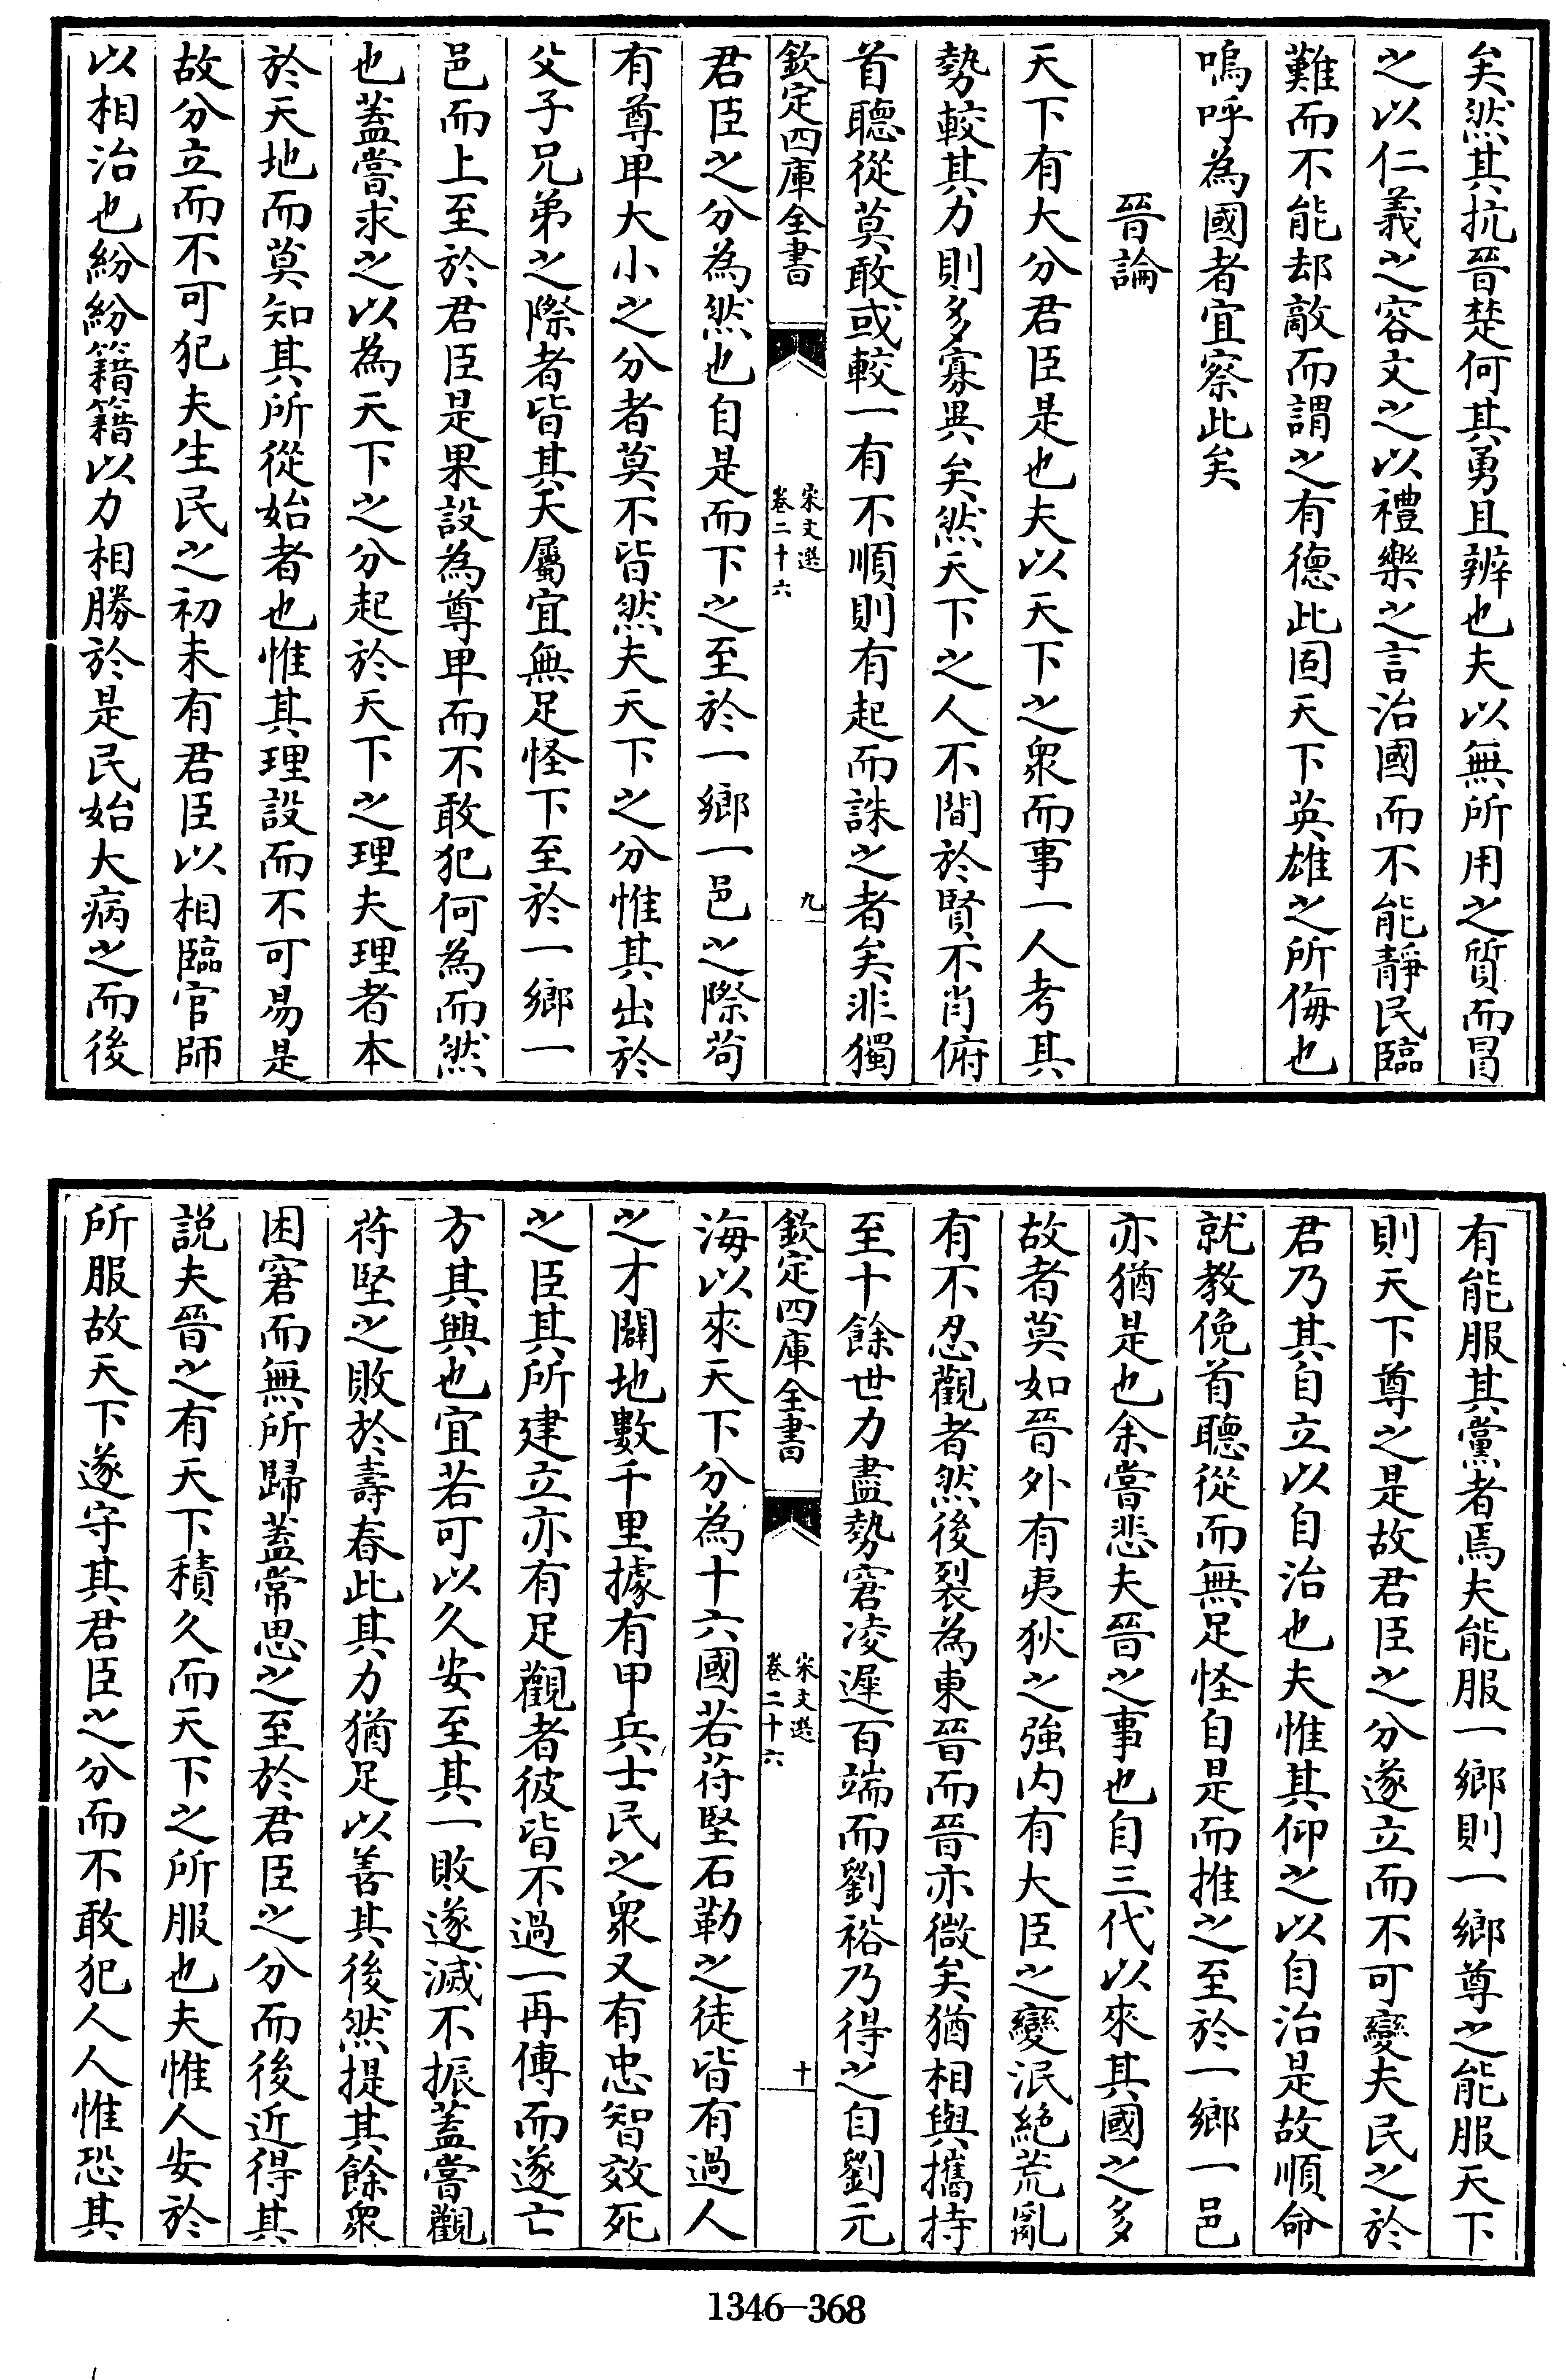 矣然其抗晉楚何其勇且辨也夫以無所用之質而冒
之以仁義之容文之以禮樂之言治國而不能靜民臨
難而不能却敵而謂之有德此固天下英雄之所侮也
嗚呼為國者宜察此矣
晉論
天下有大分君臣是也夫以天下之衆而事一人考其
勢較其力則多寡異矣然天下之人不間於賢不肖俯
首聽從莫敢或較一有不順則有起而誅之者矣非獨
欽定四庫全書
宋文選
卷二十六
九
君臣之分為然也自是而下之至於一鄉一邑之際苟
有尊卑大小之分者莫不皆然夫天下之分惟其出於
父子兄弟之際者皆其天屬宜無足怪下至於一鄉一
邑而上至於君臣是果設為尊卑而不敢犯何為而然
也蓋嘗求之以為天下之分起於天下之理夫理者本
於天地而莫知其所從始者也惟其理設而不可易是
故分立而不可犯夫生民之初未有君臣以相臨官師
以相治也紛紛籍籍以力相勝於是民始大病之而後
有能服其黨者焉夫能服一鄉則一鄉尊之能服天下
則天下尊之是故君臣之分遂立而不可變夫民之於
君乃其自立以自治也夫惟其仰之以自治是故順命
就教俛首聽從而無足怪自是而推之至於一鄉一邑
亦猶是也余嘗悲夫晉之事也自三代以來其國之多
故者莫如晉外有夷狄之強内有大臣之變泯絶荒亂
有不忍觀者然後裂為東晉而晉亦微矣猶相與攜持
至十餘世力盡勢窘凌遲百端而劉裕乃得之自劉元
欽定四庫全書
宋文選
卷二十六
十
海以來天下分為十六國若苻堅石勒之徒皆有過人
之才闢地數千里據有甲兵士民之衆又有忠智效死
之臣其所建立亦有足觀者彼皆不過一再傳而遂亡
方其興也宜若可以久安至其一敗遂滅不振蓋嘗觀
苻堅之敗於壽春此其力猶足以善其後然提其餘衆
困窘而無所歸蓋常思之至於君臣之分而後近得其
説夫晉之有天下積久而天下之所服也夫惟人安於
所服故天下遂守其君臣之分而不敢犯人人惟恐其
1346-368